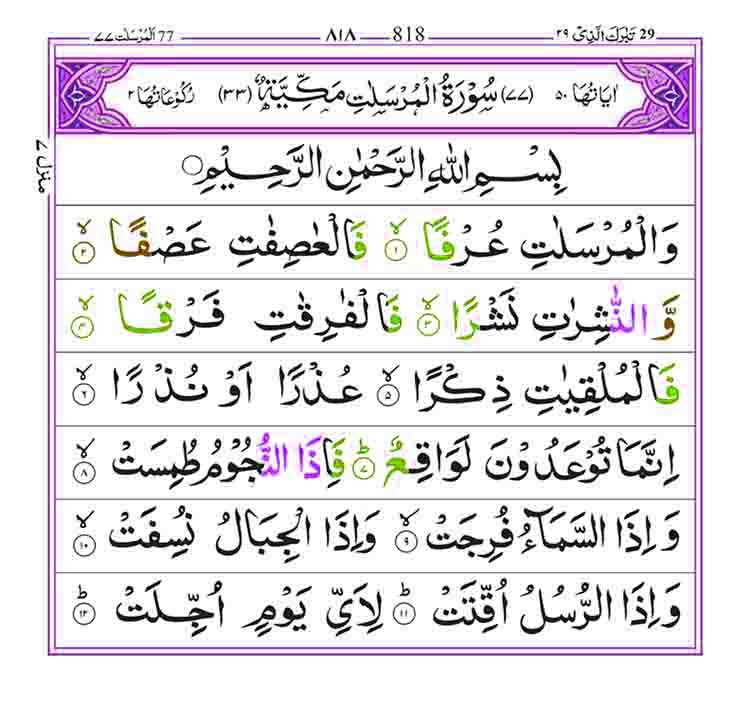 77 اَلْمُرْسَلٰت ٧٧ ٨١٨ 818 29 تَبٰرَكَ الَّذِىْ ٢٩
اٰيَاتُهَا ٥٠ (٧٧) سُوْرَةُ الْمُرْسَلٰتِ مَكِّيَّةٌ (٣٣) رُكُوْعَاتُهَا ٢
منزل ٧
بِسْمِ اللّٰهِ الرَّحْمٰنِ الرَّحِيْمِ
وَالْمُرْسَلٰتِ عُرْفًا ۙ‏﴿١﴾ فَالْعٰصِفٰتِ عَصْفًا ۙ‏﴿٢﴾
وَّ النّٰشِرٰتِ نَشْرًا ۙ‏﴿٣﴾ فَالْفٰرِقٰتِ فَرْقًا ۙ‏﴿٤﴾
فَالْمُلْقِيٰتِ ذِكْرًا ۙ‏﴿٥﴾ عُذْرًا اَوْ نُذْرًا ۙ‏﴿٦﴾
اِنَّمَا تُوْعَدُوْنَ لَوَاقِعٌ ؕ‏﴿٧﴾ فَاِذَا النُّجُوْمُ طُمِسَتْ ۙ‏﴿٨﴾
وَ اِذَا السَّمَآءُ فُرِجَتْ ۙ‏﴿٩﴾ وَاِذَا الْجِبَالُ نُسِفَتْ ۙ‏﴿١٠﴾
وَاِذَا الرُّسُلُ اُقِّتَتْ ؕ‏﴿١١﴾ لِاَىِّ يَوْمٍ اُجِّلَتْ ؕ‏﴿١٢﴾